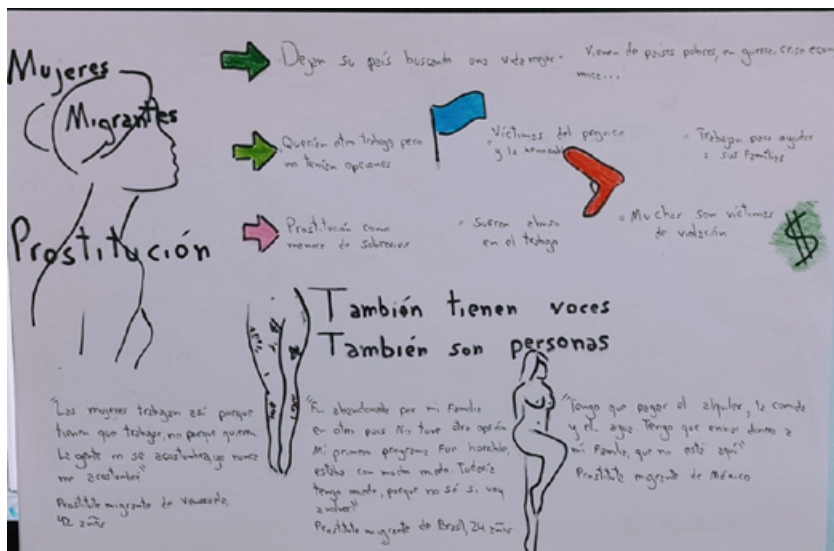 Mujeres
Migrantes
Prostitución
Dejan su país buscando una vida mejor.
Vienen de países pobres, en guerra, crise econo
mica...
Querían otro trabajo pero
no tenían opciones
Víctimas del prejuicio
y la
Trabajan para ayudar
a sus familias
Prostitución como
manera de sobrevivir
Sufren abuso
en el trabajo
Muchas son víctimas
de violación
$
También tienen voces
También son personas
"Las mujeres trabajan así porque
tienen que trabajar, no porque quieren.
La gente no se acostumbra, yo nunca
me acostumbré"
Prostituta migrante de Venezuela,
42 años
"Fui abandonada por mi familia
en otro país No tuve otra opción
Mi primero programa fue horrible,
estaba con mucho miedo Todavía
tengo miedo, porque no sé si voy
a volver"
Prostituta migrante de Brasil, 24 años
"Tengo que pagar el alquiler, la comida
y el agua Tengo que enviar dinero a
mi familia, que no está aquí"
Prostituta migrante de México